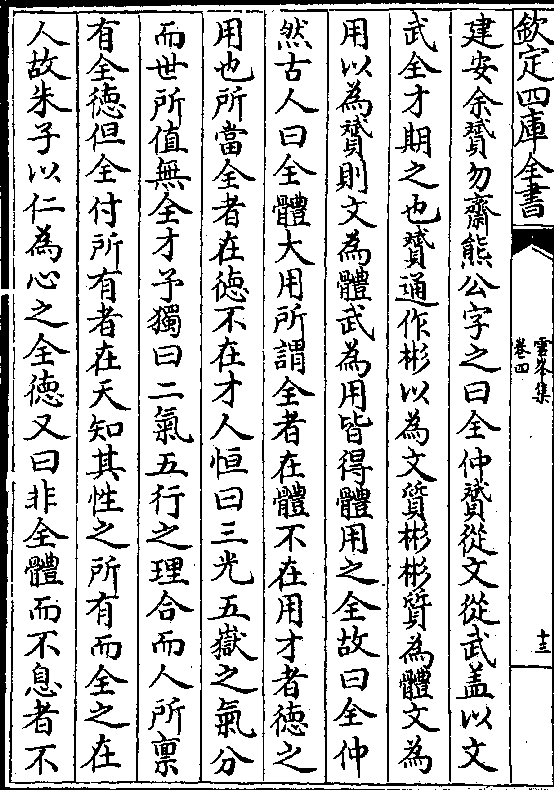 欽定四庫全書
雲峯集
卷四
十三
建安余贇勿齋熊公字之曰全仲贇從文從武盖以文
武全才期之也贇通作彬以為文質彬彬質為體文為
用以為贇則文為體武為用皆得體用之全故曰全仲
然古人曰全體大用所謂全者在體不在用才者徳之
用也所當全者在徳不在才人恒曰三光五嶽之氣分
而世所值無全才予獨曰二氣五行之理合而人所禀
有全徳但全付所有者在天知其性之所有而全之在
人故朱子以仁為心之全徳又曰非全體而不息者不